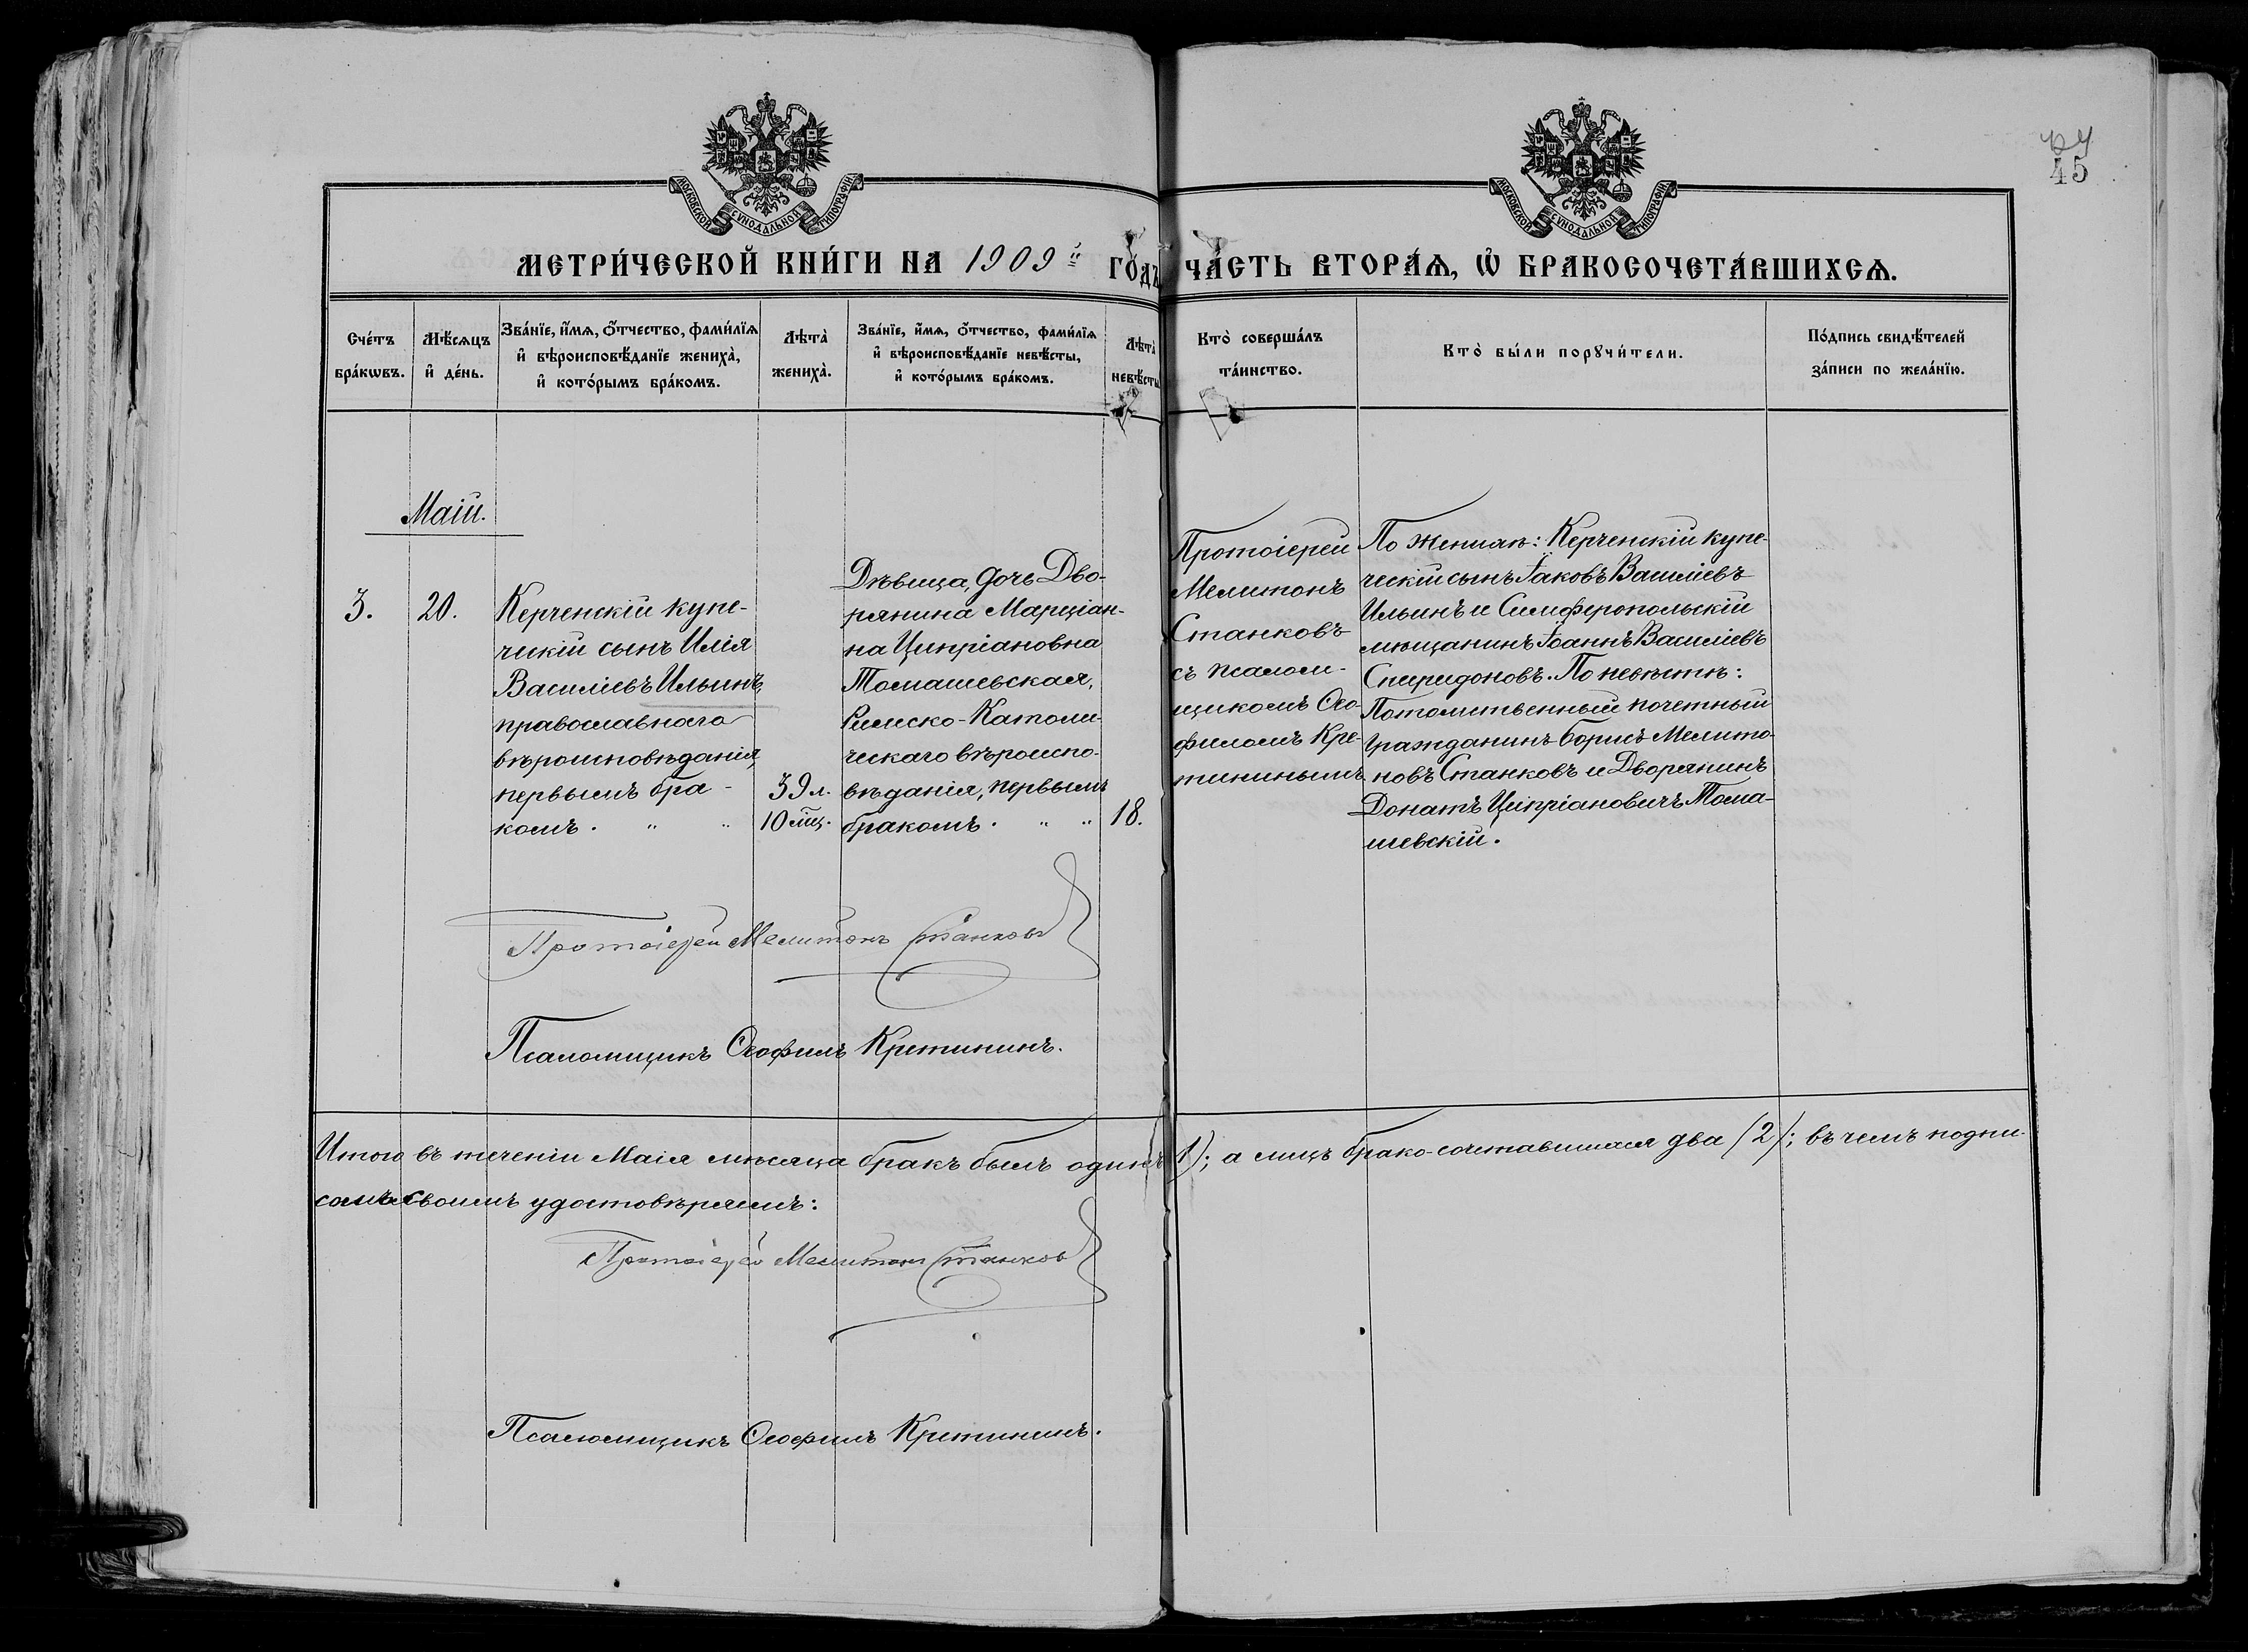 45
МОСКОВСКОЙ СѴНОДАЛЬНОЙ ТИПОГРАФІИ
МОСКОВСКОЙ СѴНОДАЛЬНОЙ ТИПОГРАФІИ
МЕТРИ́ЧЕСКОЙ КНИ́ГИ НА 1909й ГО́ДЪ
ЧА́СТЬ ВТОРА́Ѧ, Ѡ҆ БРАКОСОЧЕТА́ВШИХСѦ.
Сче́тъ
бра́кѡвъ.
Мѣ́сѧцъ
и҆ де́нь.
Зва́нїе, и҆́мѧ, ѻ҆́тчество, фами́лїѧ
и҆ вѣроисповѣ́данїе жениха̀,
и҆ кото́рымъ бра́комъ.
Лѣта̀
жениха̀.
Зва́нїе, и҆́мѧ, ѻ҆́тчество, фами́лїѧ
и҆ вѣроисповѣ́данїе невѣ́сты,
и҆ кото́рымъ бра́комъ.
Лѣта̀
невѣ́сты
Кто̀ соверша́лъ
та́инство.
Кто̀ бы́ли порꙋчи́тели.
По́дпись свидѣ́телей
за́писи по жела́нїю.
Маій.
3.
20.
Керченскій купе-
ческій сынъ Илія
Василіевъ Ильинъ,
православнаго
вѣроисповѣданія,
первымъ бра-
комъ. " "
39 л.
10 мѣц.
Дѣвица, дочь Дво-
рянина Марціан-
на Ципріановна
Томашевская,
Римско-Католи-
ческаго вѣроиспо-
вѣданія, первымъ
бракомъ. " "
18.
Протоіерей
Мелитонъ
Станковъ
съ псалом-
щикомъ Ѳео-
филомъ Кре-
тининымъ
По женихѣ: Керченскій купе-
ческій сынъ Іаковъ Василіевъ
Ильинъ и Симферопольскій
мѣщанинъ Іоаннъ Василіевъ
Спиридоновъ. По невѣстѣ:
Потомственный почетный
гражданинъ Борисъ Мелито-
новъ Станковъ и Дворянинъ
Донатъ Ципріановичъ Тома-
шевскій.
Протоіерей Мелитонъ Станковъ
Псаломщикъ Ѳеофилъ Кретининъ.
Итого въ теченіи Маія мѣсяца бракъ былъ одинъ (1); а лицъ брако-сочетавшихся два (2); въ чемъ подпи-
сомъ своимъ удостовѣряемъ:
Протоіерей Мелитонъ Станковъ
Псаломщикъ Ѳеофилъ Кретининъ.